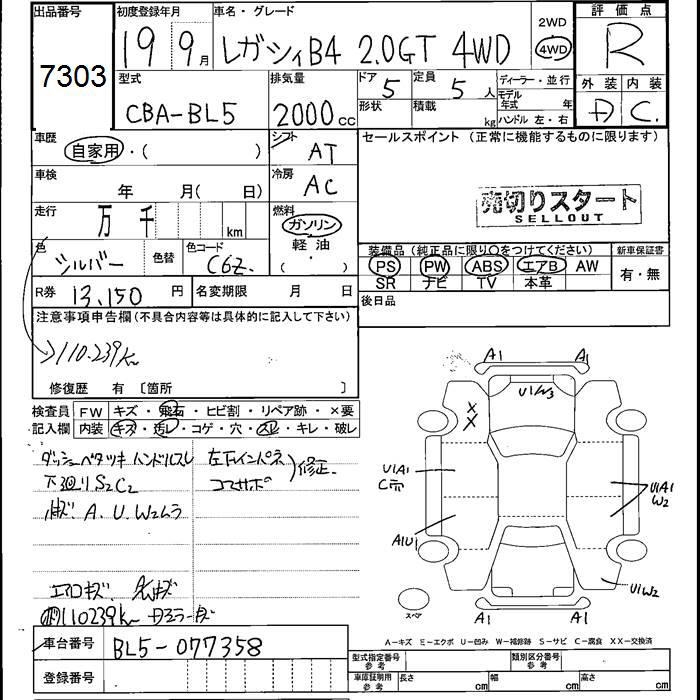 出品番号 初度登録年月 車名・グレード 2WD 評価点
7303 19 9月 レガシィB4 2.0GT 4WD 4WD R
型式 排気量 ドア 定員 ディーラー・並行 外装 内装
CBA-BL5 2000cc 5 5人 モデル年式 年
形状 積載 kg ハンドル 左・右 C
車歴 シフト セールスポイント (正常に機能するものに限ります)
自家用・( ) AT
車検 冷房
年 月(日) AC
売切りスタート
SELLOUT
走行 燃料
万 千 km ガソリン
軽油・( )
色 色替 色コード 装備品 (純正品に限り○をつけてください) 新車保証書
シルバー C6Z PS PW ABS エアB AW 有・無
SR ナビ TV 本革
R券 13,150円 名変期限 月 日 後日品
注意事項申告欄(不具合内容等は具体的に記入して下さい)
110.239km
修復歴 有 [箇所 ]
検査員記入欄 FW キズ・飛石・ヒビ割・リペア跡・×要
内装 キズ・汚レ・コゲ・穴・スレ・キレ・破レ
ダッシュベタツキ ハンドルスレ 左右インパネ 修正
下廻りS2C2 コアサポ
A.U.W2ムラ
エアロキズ
110239km
車台番号 BL5-077358
登録番号
A1 A1
U1/W3
X
X
U1A1
C
U1A1
W2
A1U1
U1W2
A1 A1
スペア
A-キズ E-エクボ U-凹み W-補修跡 S-サビ C-腐食 XX-交換済
型式指定番号 参考 類別区分番号 参考
車庫証明用 参考 長さ cm 幅 cm 高さ cm